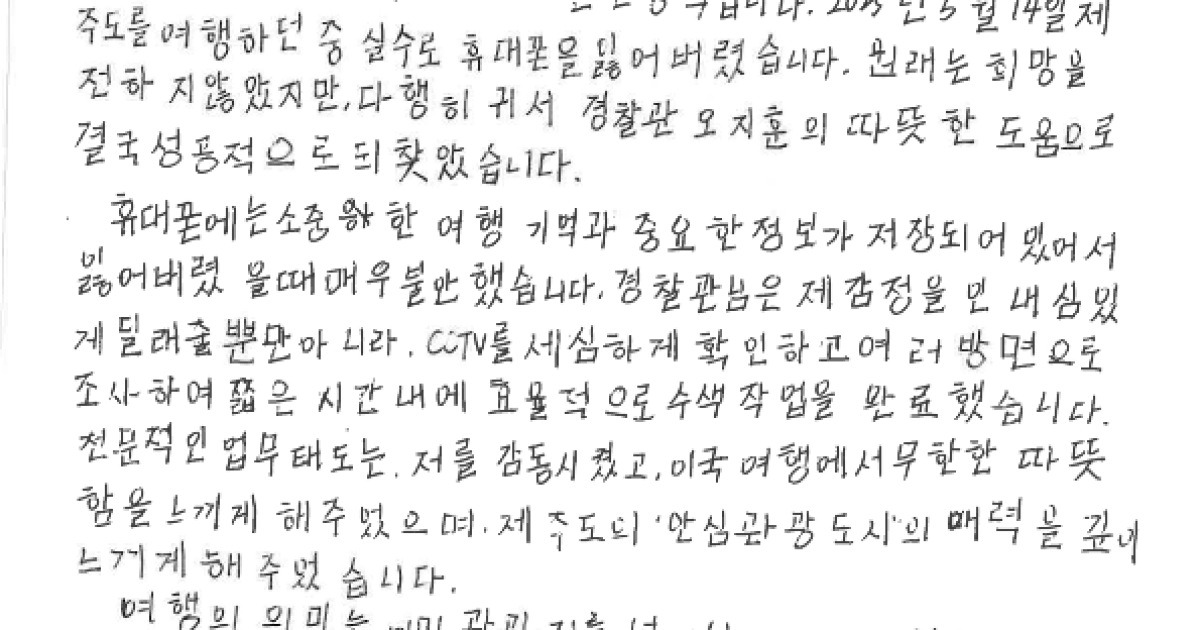 2025년 5월 14일 제
주도를 여행하던 중 실수로 휴대폰을 잃어버렸습니다. 원래는 희망을
전하지않았지만, 다행히 귀서 경찰관 오지훈의 따뜻한 도움으로
결국 성공적으로 되찾았습니다.
휴대폰에는 소중한 여행 기억과 중요한 정보가 저장되어 있어서
잃어버렸을때 매우 불안했습니다. 경찰관님은 제 감정을 인내심있
게 달래줄뿐만아니라, CCTV를 세심하게 확인하고 여러 방면으로
조사하여 짧은 시간 내에 효율적으로 수색 작업을 완료했습니다.
전문적인 업무태도는 저를 감동시켰고, 이국 여행에서 무한한 따뜻
함을 느끼게 해주었으며, 제주도의 '안심관광도시'의 매력을 깊이
느끼게 해주었습니다.
여행의 의미는